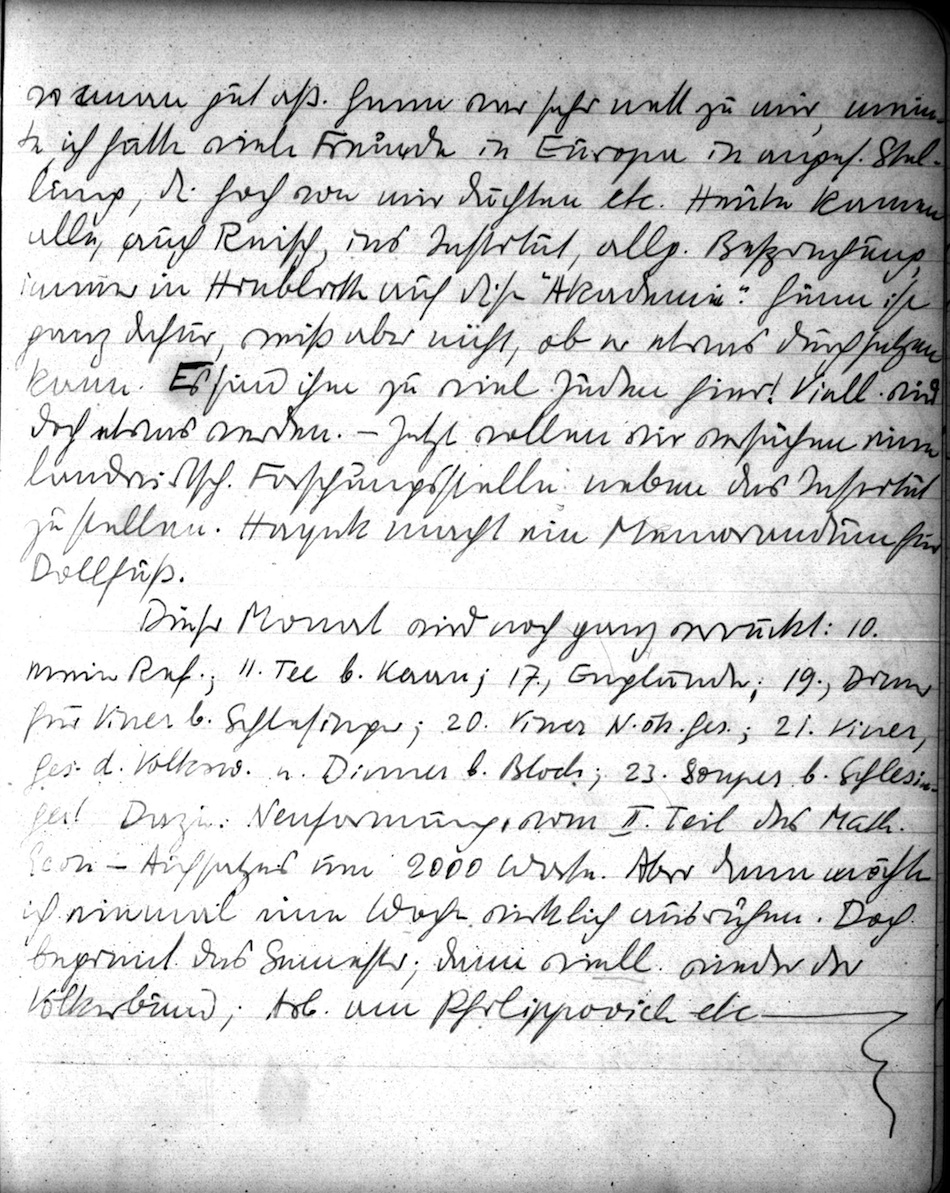 wo man gut aß. Gunn war sehr nett zu mir, mein-
te ich hätte viele Freunde in Europa in angeseh. Stel-
lung, di. hoch von mir dächten etc. Heute kamen
alle, auch Reisch, ins Institut, allg. Besprechung,
immer in Hinblick auf diese "Akademie". Gunn ist
ganz dafür, weiß aber nicht, ob er etwas durchsetzen
kann. Es sind ihm zu viel Juden hier! Viell. wird
doch etwas werden. – Jetzt wollen wir versuchen eine
landwirtsch. Forschungsstelle neben das Institut
zu stellen. Hayek macht ein Memorandum für
Dollfuß.
Dieser Monat wird noch ganz verrückt: 10.
mein Ref.; 11. Tee b. Kaan; 17., Engländer; 19., Dinner
für Viner b. Schlesinger; 20. Viner N.ök.Ges.; 21. Viner,
Ges. d. Volksw. u. Dinner b. Bloch; 23. Souper b. Schlesin-
ger! Dazu: Neuformung vom II. Teil des Math.
Econ – Aufsatzes um 2000 Worte. Aber dann möchte
ich einmal eine Woche wirklich ausruhen. Doch
beginnt das Semester; dann viell. wieder der
Völkerbund; Arb. am Philippovich etc